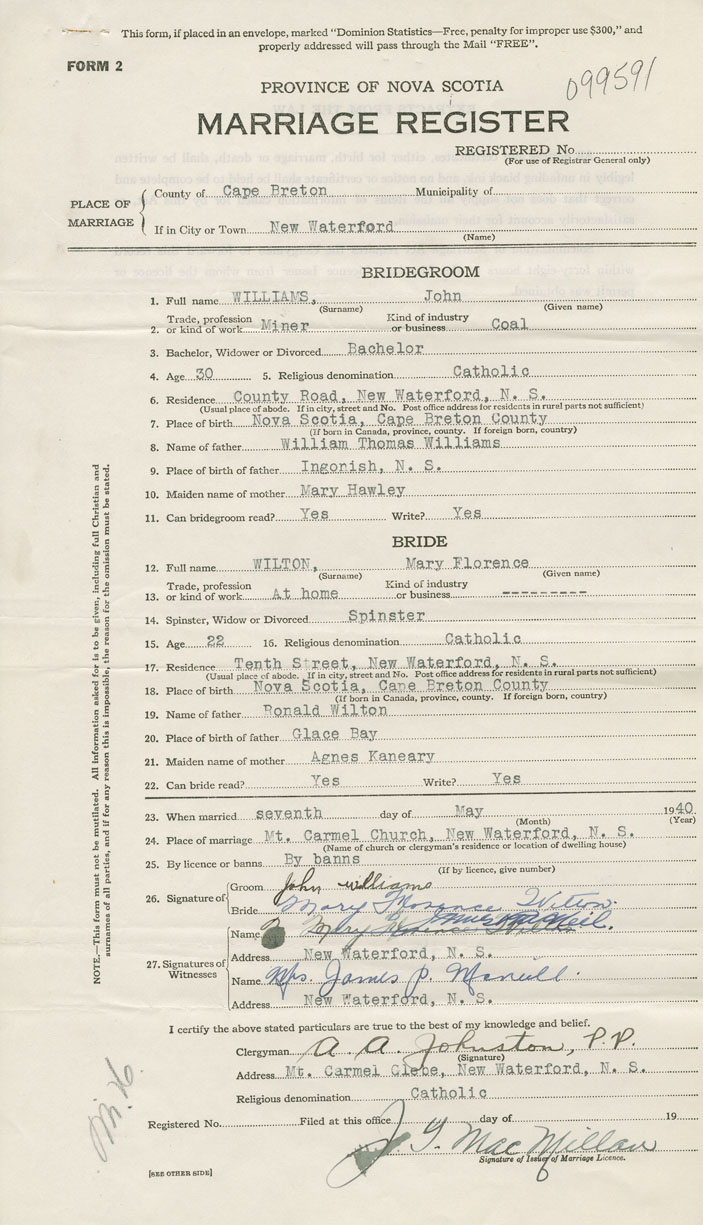 This form, if placed in an envelope, marked "Dominion Statistics—Free, penalty for improper use $300," and
properly addressed will pass through the Mail "FREE".
FORM 2
099591
PROVINCE OF NOVA SCOTIA
MARRIAGE REGISTER
REGISTERED No.
(For use of Registrar General only)
PLACE OF MARRIAGE
County of Cape Breton Municipality of
If in City or Town New Waterford
(Name)
BRIDEGROOM
1. Full name WILLIAMS, John
(Surname) (Given name)
2. Trade, profession or kind of work Miner Kind of industry or business Coal
3. Bachelor, Widower or Divorced Bachelor
4. Age 30 5. Religious denomination Catholic
6. Residence County Road, New Waterford, N. S.
(Usual place of abode. If in city, street and No. Post office address for residents in rural parts not sufficient)
7. Place of birth Nova Scotia, Cape Breton County
(If born in Canada, province, county. If foreign born, country)
8. Name of father William Thomas Williams
9. Place of birth of father Ingorish, N. S.
10. Maiden name of mother Mary Hawley
11. Can bridegroom read? Yes Write? Yes
BRIDE
12. Full name WILTON, Mary Florence
(Surname) (Given name)
13. Trade, profession or kind of work At home Kind of industry or business ---------
14. Spinster, Widow or Divorced Spinster
15. Age 22 16. Religious denomination Catholic
17. Residence Tenth Street, New Waterford, N. S.
(Usual place of abode. If in city, street and No. Post office address for residents in rural parts not sufficient)
18. Place of birth Nova Scotia, Cape Breton County
(If born in Canada, province, county. If foreign born, country)
19. Name of father Ronald Wilton
20. Place of birth of father Glace Bay
21. Maiden name of mother Agnes Kaneary
22. Can bride read? Yes Write? Yes
23. When married seventh day of May 1940
(Month) (Year)
24. Place of marriage Mt. Carmel Church, New Waterford, N. S.
(Name of church or clergyman's residence or location of dwelling house)
25. By licence or banns By banns
(If by licence, give number)
26. Signature of
Groom John Williams
Bride Mary Florence Wilton
27. Signatures of Witnesses
Name
Address New Waterford, N. S.
Name Mrs. James P. McNeill.
Address New Waterford, N. S.
I certify the above stated particulars are true to the best of my knowledge and belief.
Clergyman A. A. Johnston, P.P.
(Signature)
Address Mt. Carmel Glebe, New Waterford, N. S.
Religious denomination Catholic
Registered No. Filed at this office day of 19
J. G. MacMillan
Signature of Issuer of Marriage Licence.
[SEE OTHER SIDE]
NOTE.—This form must not be mutilated. All information asked for is to be given, including full Christian and
surnames of all parties, and if for any reason this is impossible, the reason for the omission must be stated.